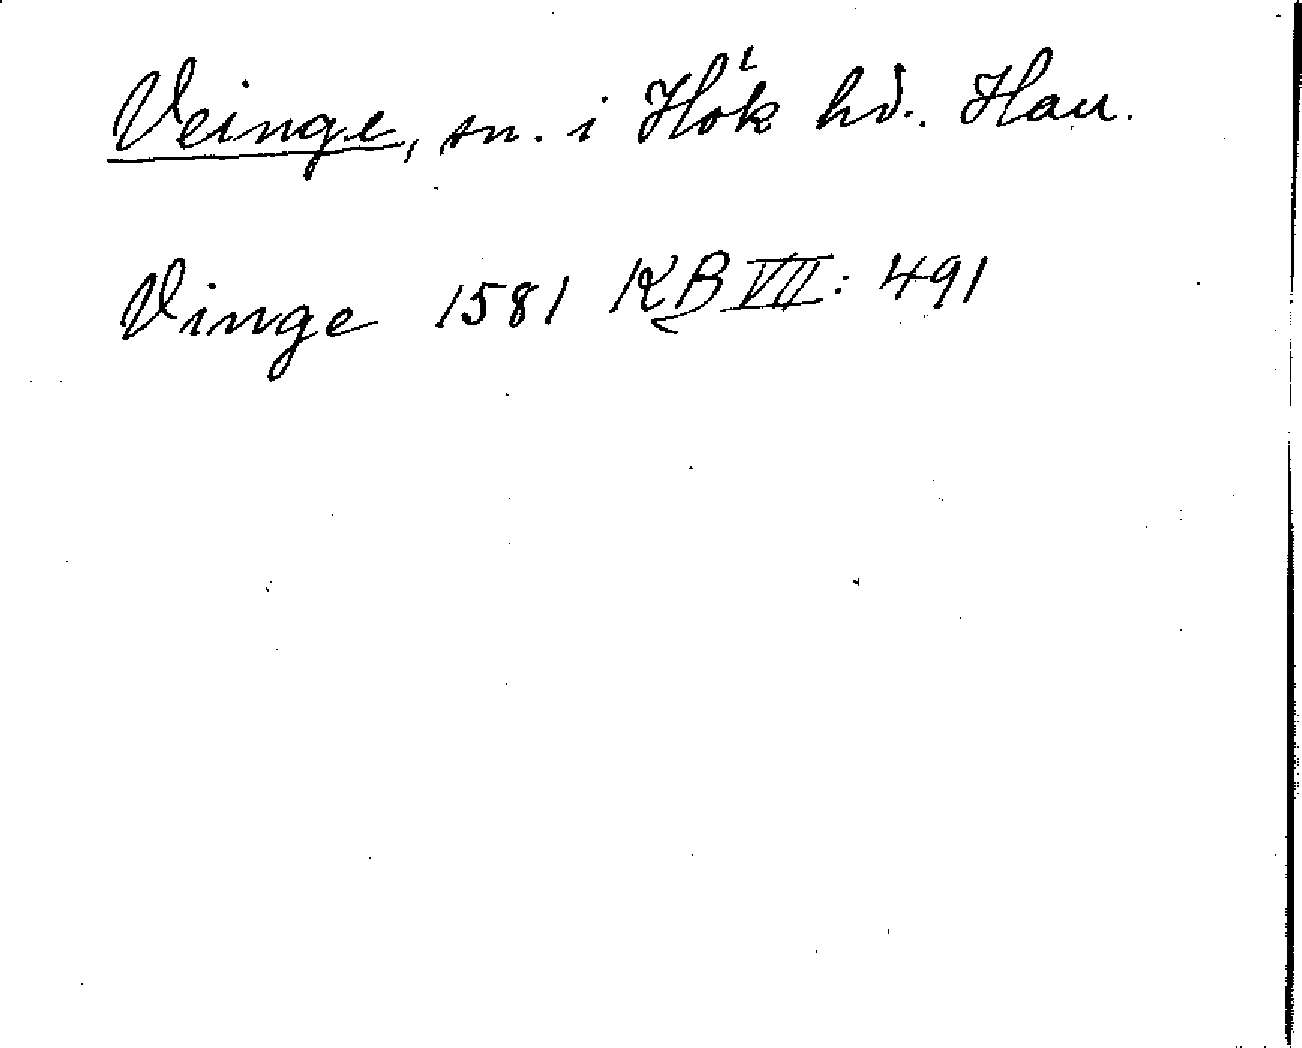 Veinge, sn. i Hök hd. Hall.
Vinge 1581 KB VII: 491